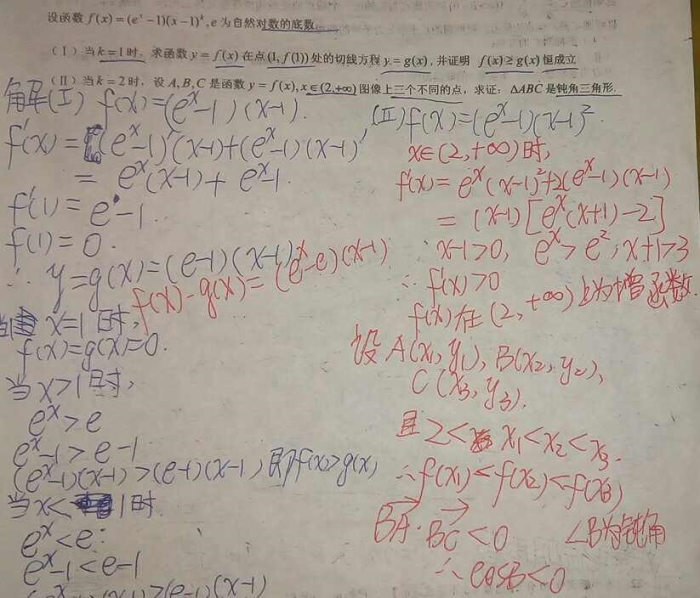 设函数 f(x)=(eˣ-1)(x-1)ᵏ, e 为自然对数的底数.
(Ⅰ) 当k=1时, 求函数 y=f(x) 在点(1, f(1))处的切线方程 y=g(x), 并证明 f(x)≥g(x) 恒成立
(Ⅱ) 当k=2时, 设 A,B,C 是函数 y=f(x), x∈(2,+∞) 图像上三个不同的点, 求证: ΔABC 是钝角三角形.
解(Ⅰ) f(x)=(eˣ-1)(x-1).
f'(x)=(eˣ-1)'(x-1)+(eˣ-1)(x-1)'
=eˣ(x-1)+eˣ-1.
f'(1)=e-1.
f(1)=0.
∴ y=g(x)=(e-1)(x-1)
f(x)-g(x)=(eˣ-e)(x-1)
当 x=1时,
f(x)=g(x)=0.
当 x>1时,
eˣ>e
eˣ-1>e-1
(eˣ-1)(x-1)>(e-1)(x-1) 即f(x)>g(x)
当x<1时
eˣ<e.
eˣ-1<e-1
(eˣ-1)(x-1)>(e-1)(x-1)
(Ⅱ) f(x)=(eˣ-1)(x-1)²
x∈(2,+∞)时,
f'(x)=eˣ(x-1)²+2(eˣ-1)(x-1)
=(x-1)[eˣ(x+1)-2]
∵ x-1>0, eˣ>e², x+1>3
∴ f'(x)>0
f(x)在(2,+∞)上为增函数.
设A(x₁,y₁), B(x₂,y₂),
C(x₃,y₃).
且2<x₁<x₂<x₃.
∴f(x₁)<f(x₂)<f(x₃)
BA·BC<0 ∠B为钝角
∴ cosB<0